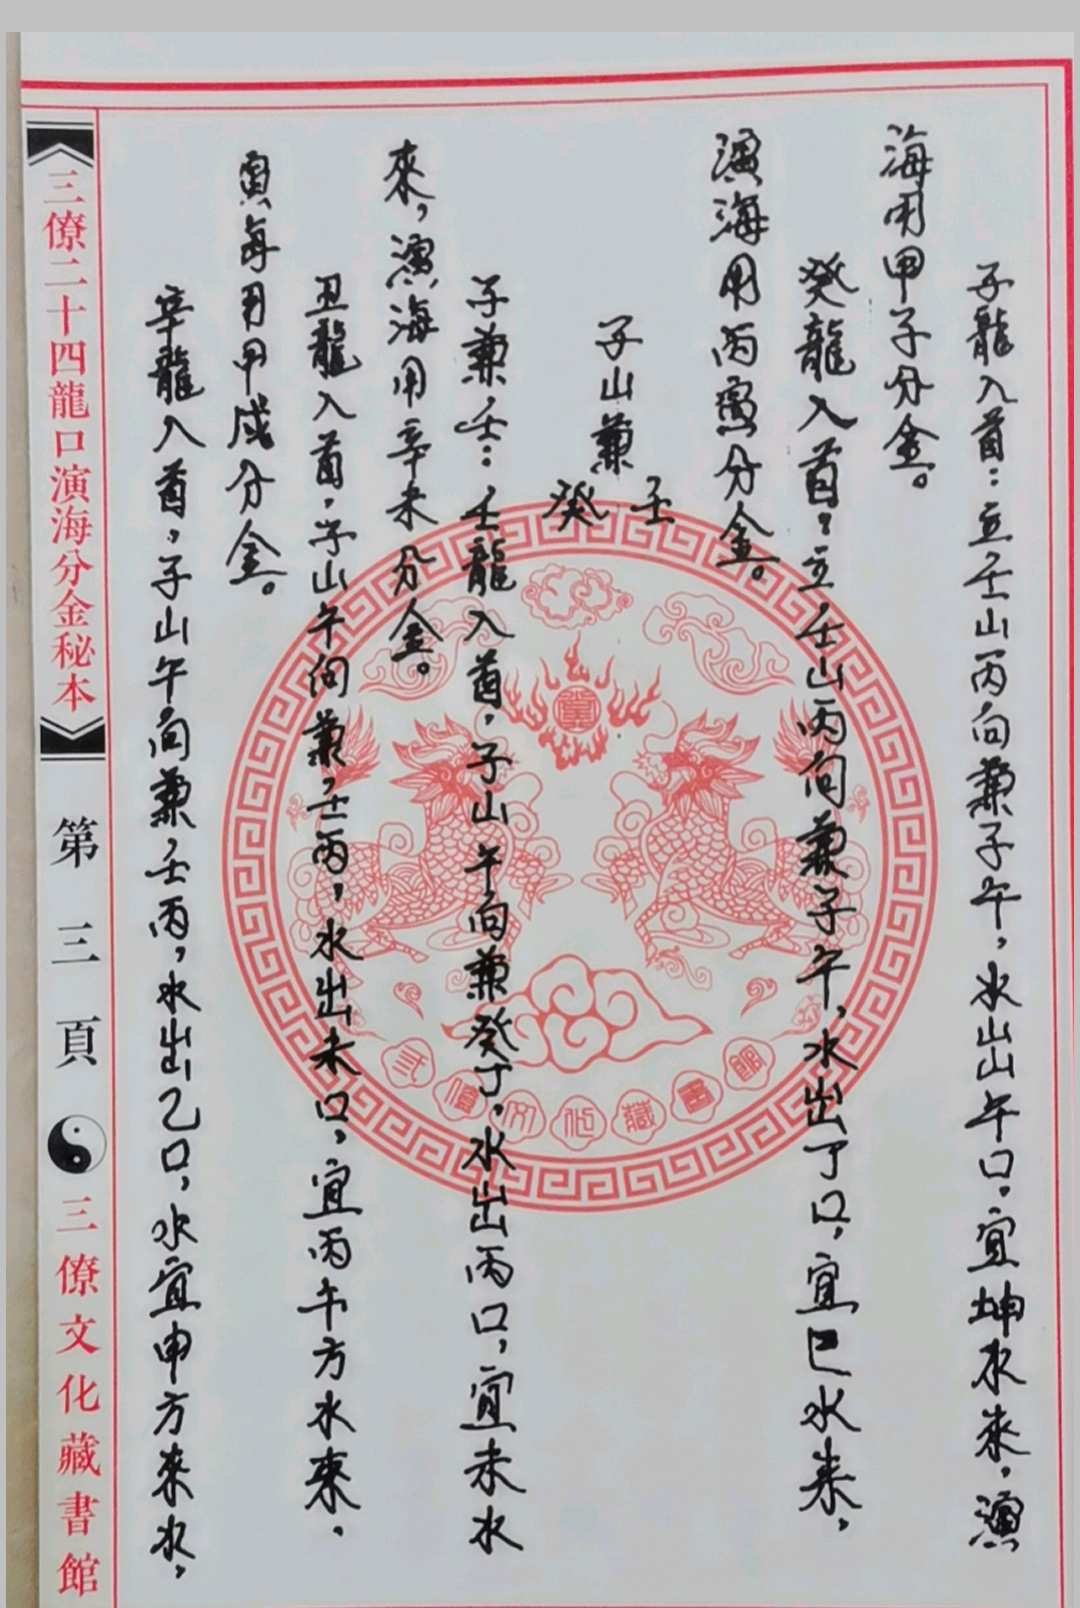 子龍入首：立壬山丙向兼子午，水出午口，宜坤水来，演
海用甲子分金。
癸龍入首：立壬山丙向兼子午，水出丁口，宜巳水来，
演海用丙寅分金。
子山兼
壬
癸
子兼壬：壬龍入首，子山午向兼癸丁，水出丙口，宜未水
來，演海用辛未分金。
丑龍入首，子山午向兼壬丙，水出未口，宜丙午方水来，
演海用甲戌分金。
辛龍入首，子山午向兼壬丙，水出乙口，水宜申方来水，
三僚二十四龍口演海分金秘本
第三頁
三僚文化藏書館
三僚文化藏書館